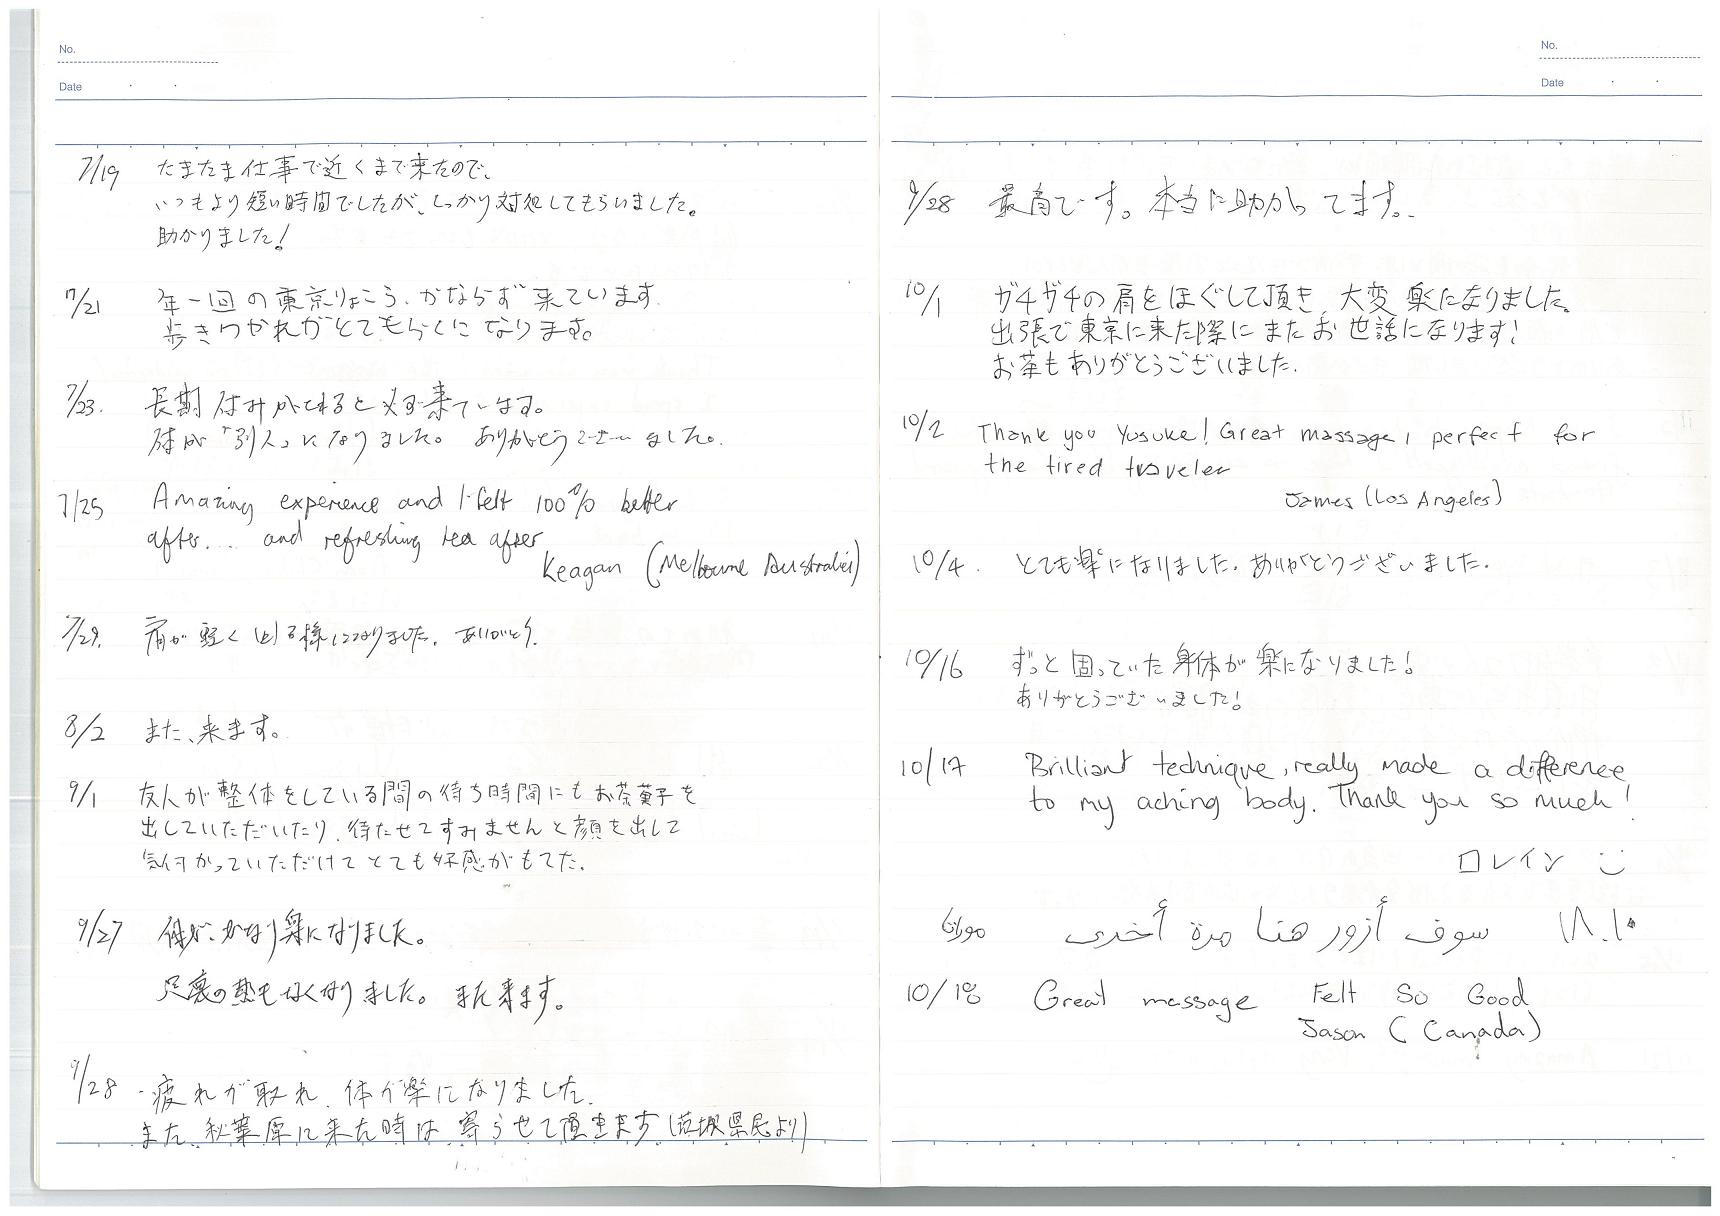 No.
Date
7/19 たまたま仕事で近くまで来たので、
いつもより短い時間でしたが、しっかり対処してもらいました。
助かりました!
7/21 年一回の東京りょこう、かならず来ています。
歩きつかれがとてもらくになります。
7/23. 長期休みがとれると必ず来ています。
体が「別人」になりました。 ありがとうございました。
7/25 Amazing experience and I felt 100% better
after.... and refreshing tea after
Keagan (Melbourne Australia)
7/29. 肩が軽く回る様になりました。ありがとう。
8/2 また、来ます。
9/1 友人が整体をしている間の待ち時間にもお茶菓子を
出していただいたり、待たせてすみませんと顔を出して
気付かっていただけてとても好感がもてた。
9/27 体が、かなり楽になりました。
足裏の熱もなくなりました。 また来ます。
9/28 疲れが取れ、体が楽になりました。
また、秋葉原に来た時は寄らせて頂きます(茨城県民より)
No.
Date
9/28 最高です。本当に助かってます。
10/1 ガチガチの肩をほぐして頂き、大変楽になりました。
出張で東京に来た際にまたお世話になります!
お茶もありがとうございました.
10/2 Thank you Yusuke! Great massage, perfect for
the tired traveler
James (Los Angeles)
10/4. とても楽になりました。ありがとうございました.
10/16 ずっと固っていた身体が楽になりました!
ありがとうございました!
10/17 Brilliant technique, really made a difference
to my aching body. Thank you so much!
ロレイン
سوف أزور هنا مرة أخرى ١٨.١٠
10/18 Great massage Felt So Good
Jason (Canada)